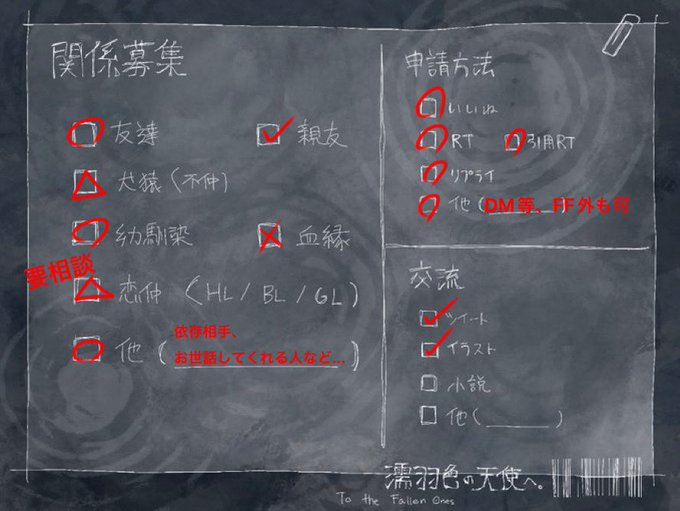 関係募集
友達
親友
犬猿(不仲)
幼馴染
血縁
要相談
恋仲 (HL / BL / GL)
他(依存相手、
お世話してくれる人など…)
申請方法
いいね
RT
引用RT
リプライ
他(DM等、FF外も可)
交流
ツイート
イラスト
小説
他(______)
濡羽色の天使へ。
To the Fallen Ones